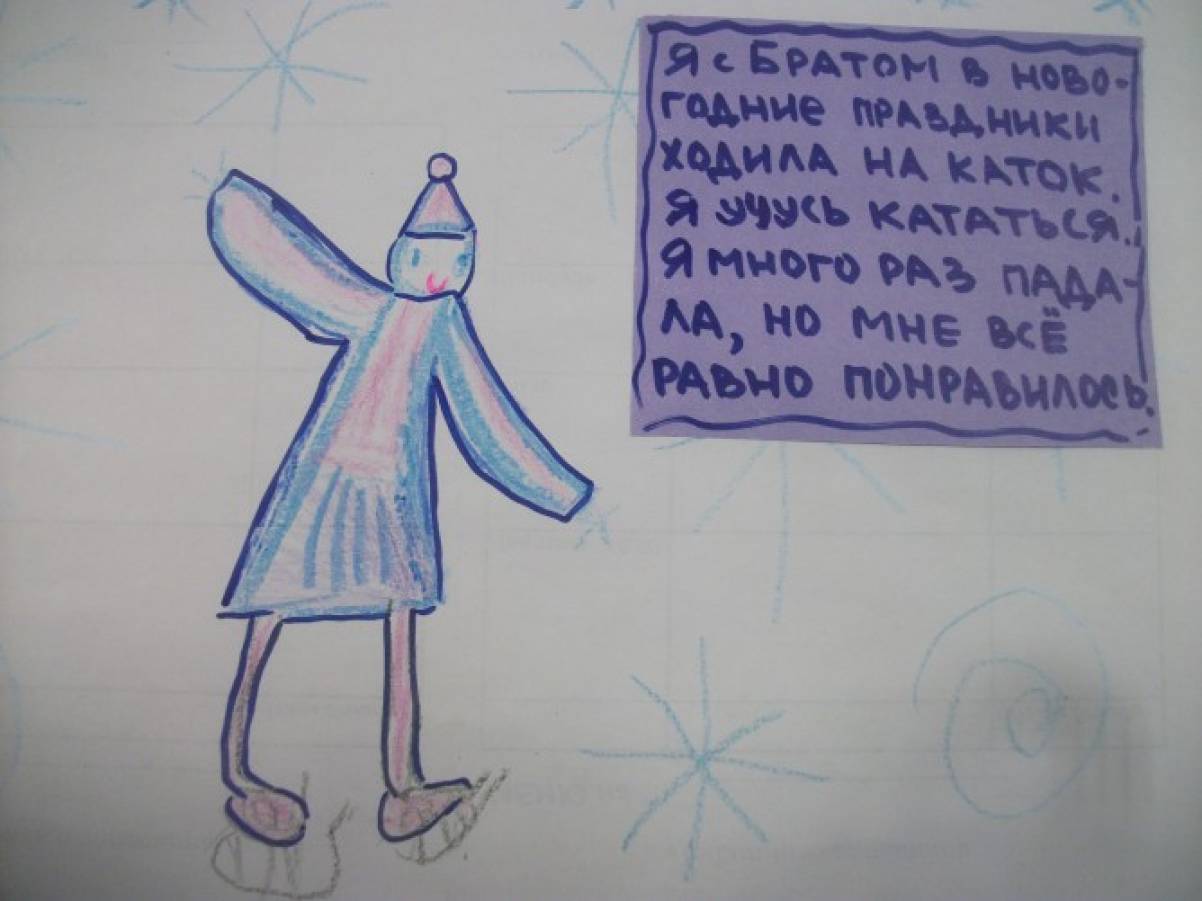 Я с БРАТОМ В НОВО-
ГОДНИЕ ПРАЗДНИКИ
ХОДИЛА НА КАТОК.
Я УЧУСЬ КАТАТЬСЯ.
Я МНОГО РАЗ ПАДА-
ЛА, НО МНЕ ВСЁ
РАВНО ПОНРАВИЛОСЬ.